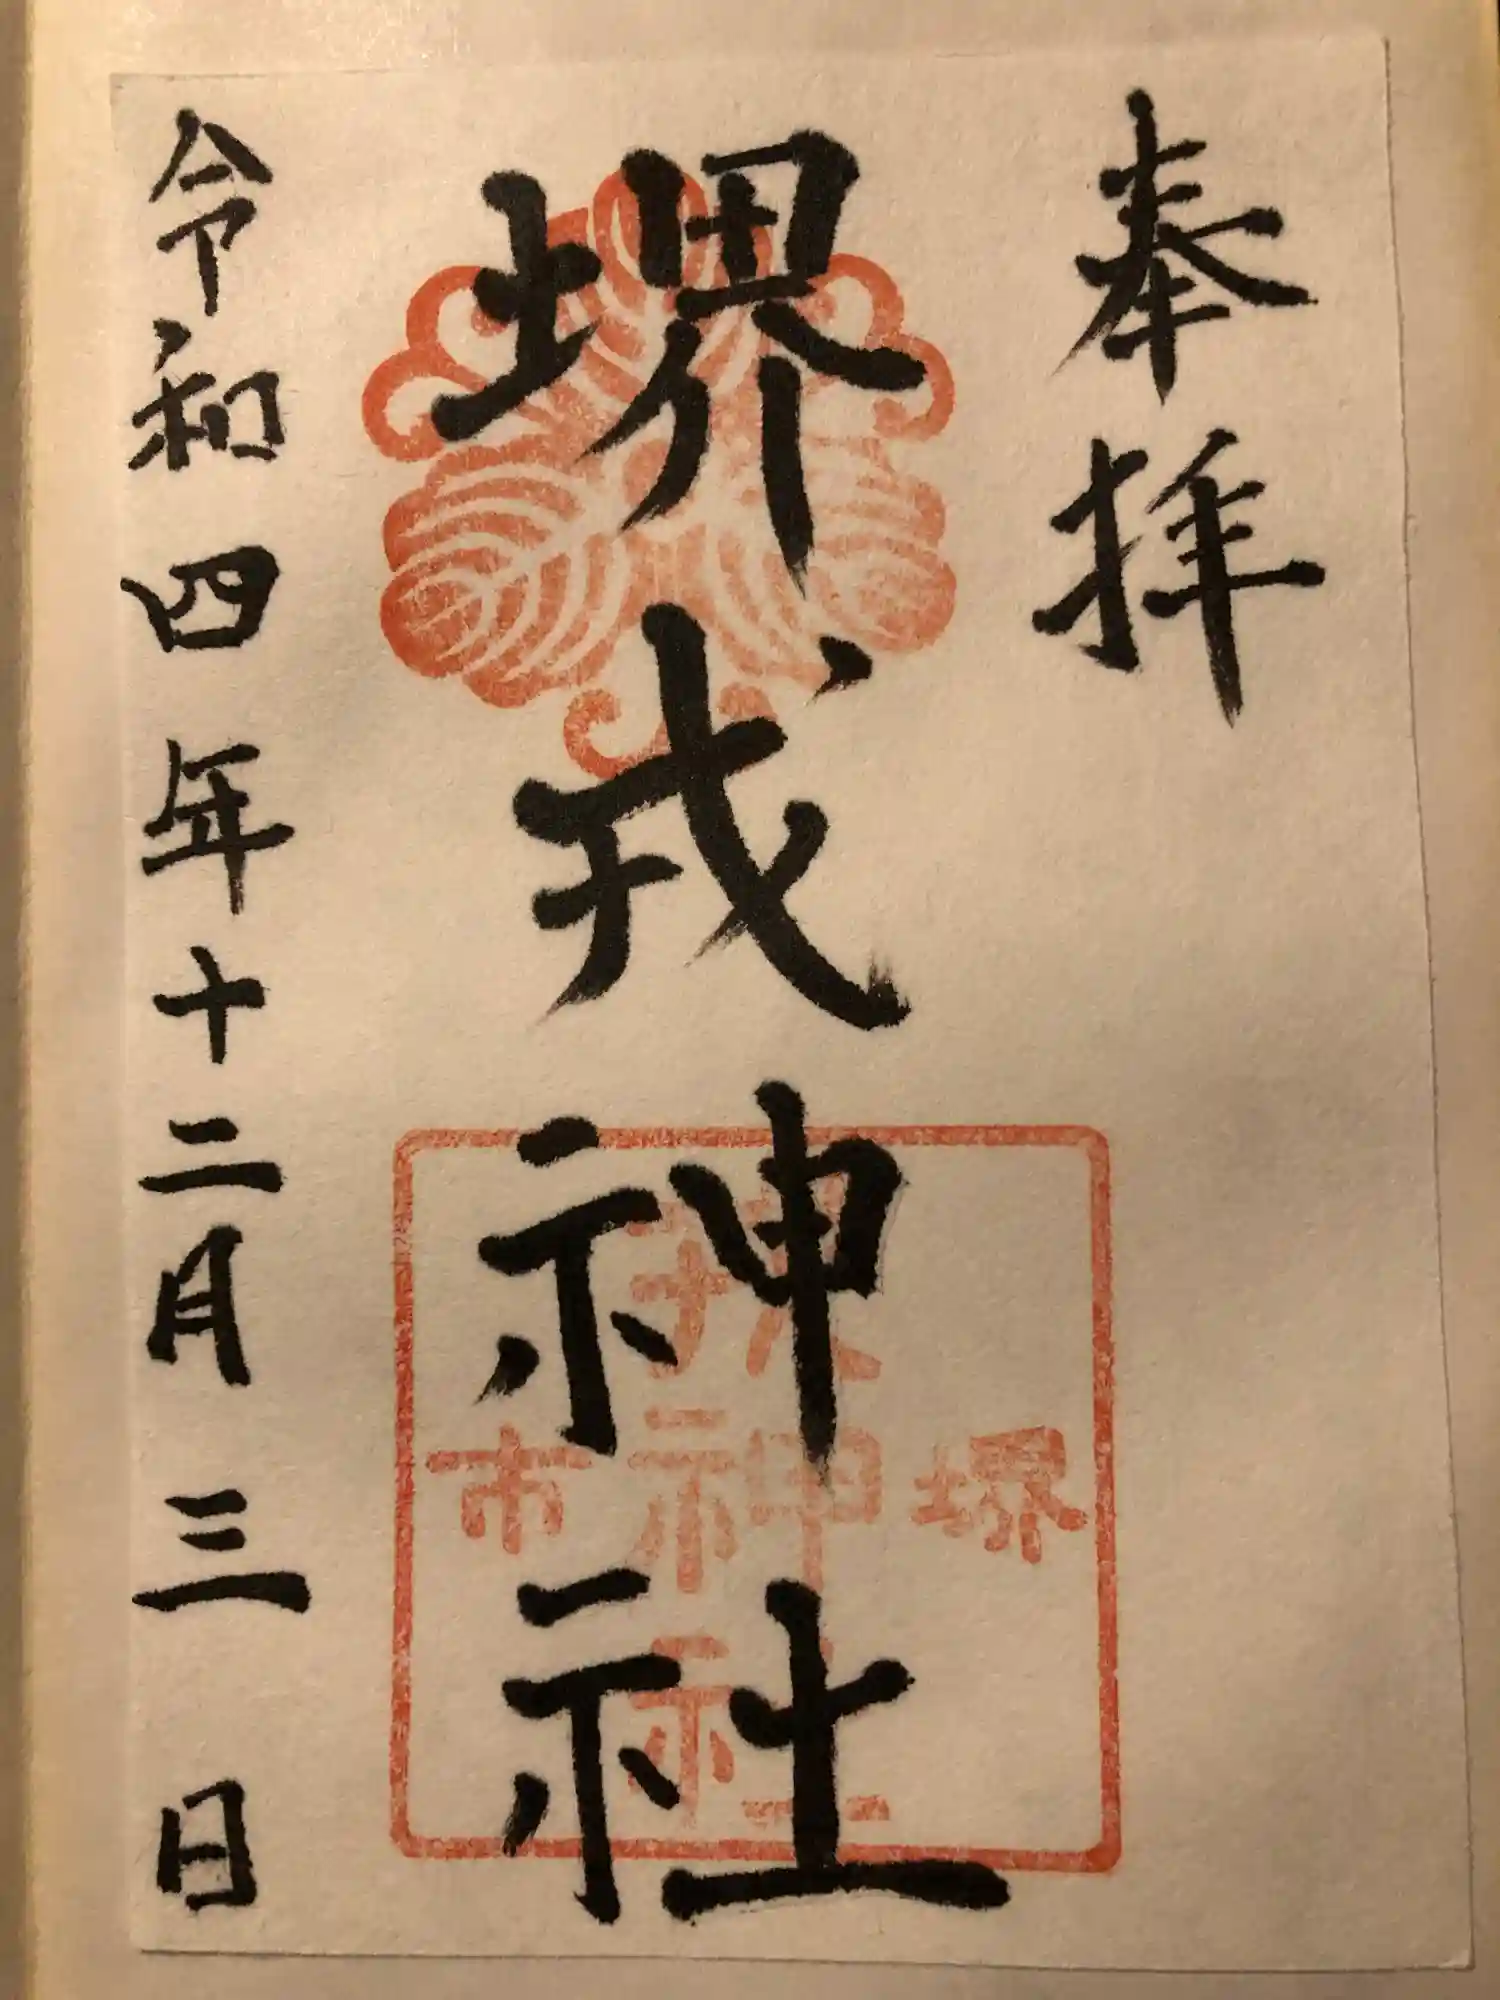 奉拝
堺戎神社
堺
戎神社
市
令和四年十二月三日